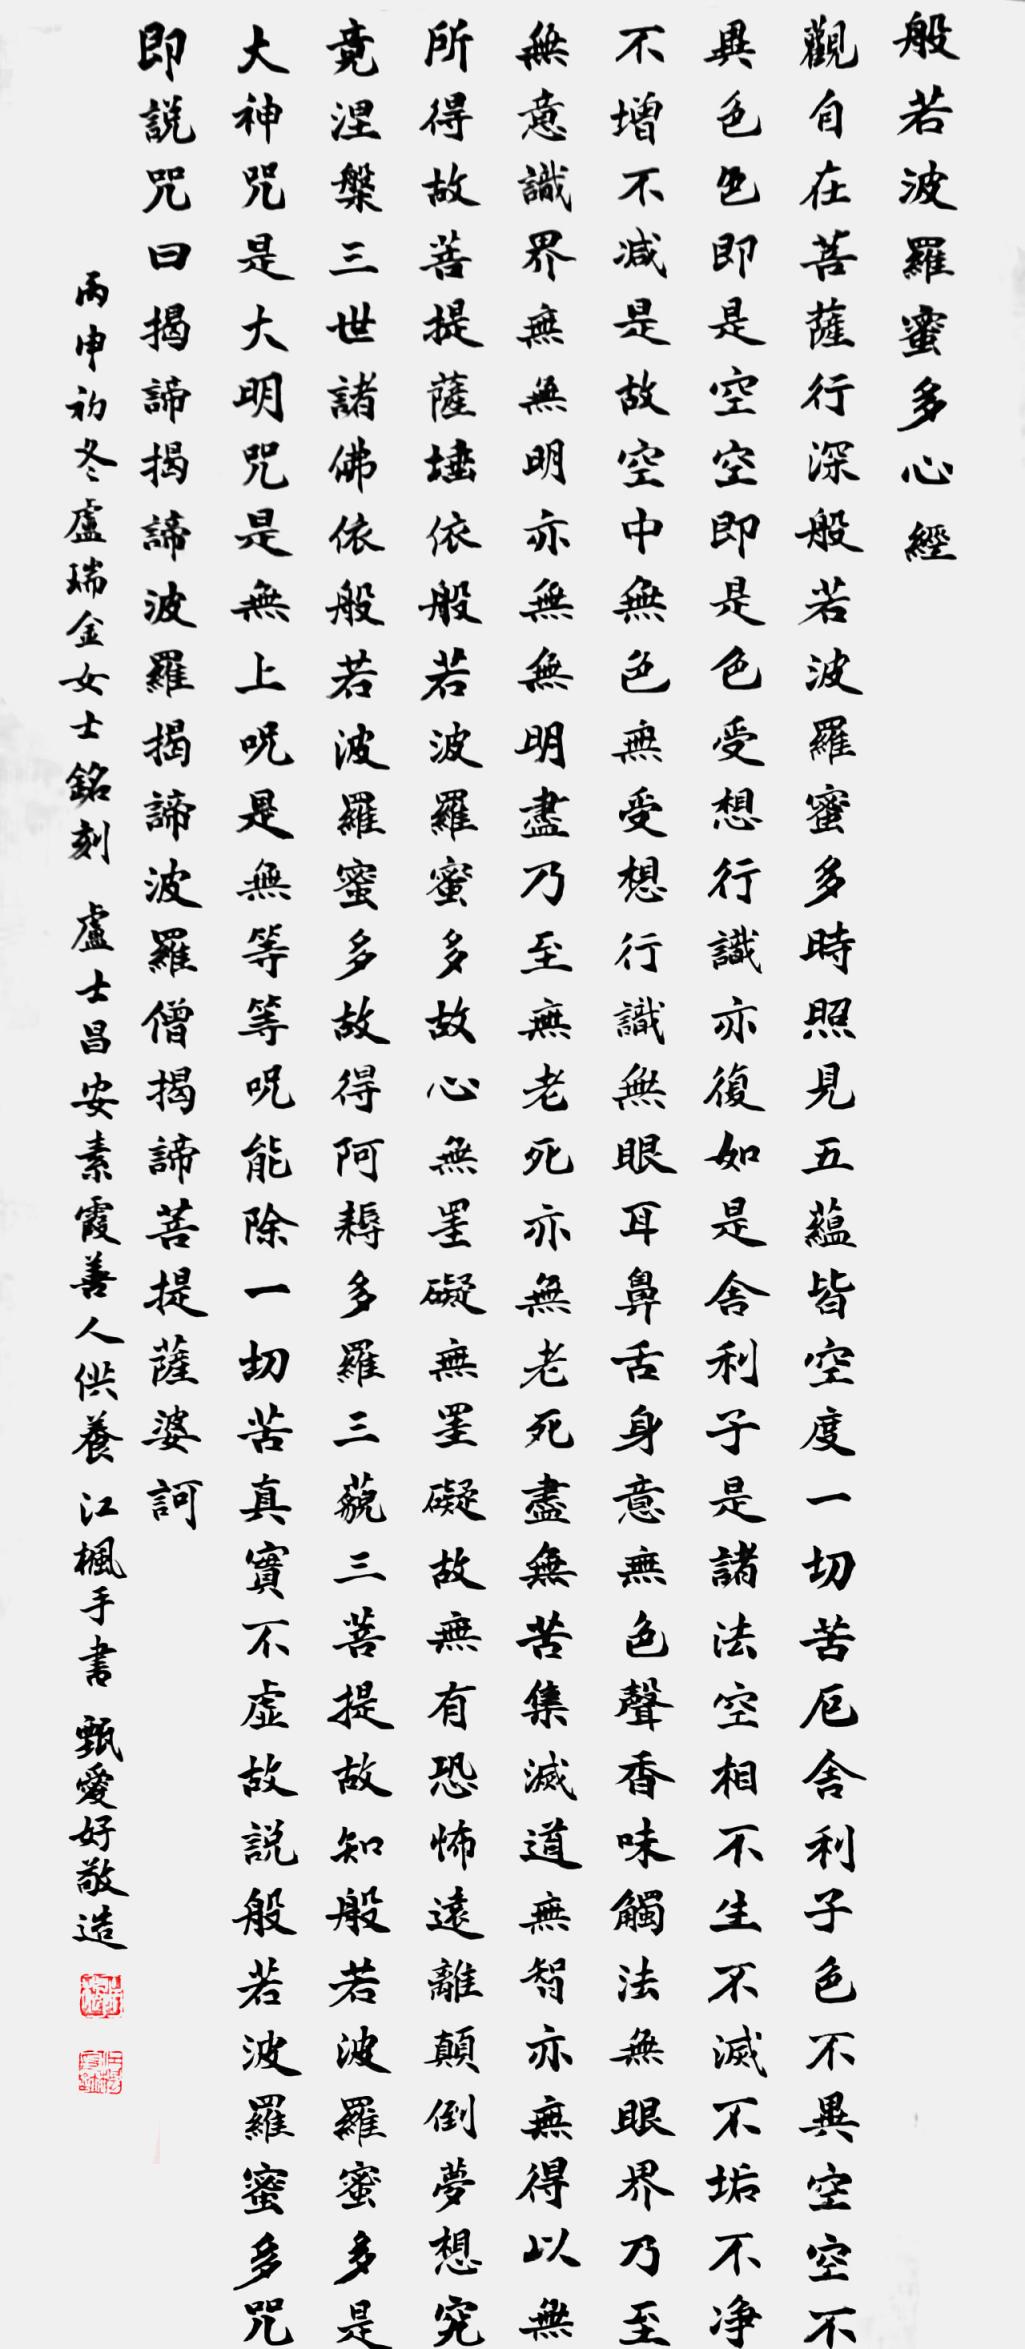 般若波羅蜜多心經
觀自在菩薩行深般若波羅蜜多時照見五蘊皆空度一切苦厄舍利子色不異空空不
異色色即是空空即是色受想行識亦復如是舍利子是諸法空相不生不滅不垢不净
不增不减是故空中無色無受想行識無眼耳鼻舌身意無色聲香味觸法無眼界乃至
無意識界無無明亦無無明盡乃至無老死亦無老死盡無苦集滅道無智亦無得以無
所得故菩提薩埵依般若波羅蜜多故心無罣礙無罣礙故無有恐怖遠離顛倒夢想究
竟涅槃三世諸佛依般若波羅蜜多故得阿耨多羅三藐三菩提故知般若波羅蜜多是
大神咒是大明咒是無上呪是無等等呪能除一切苦真實不虛故説般若波羅蜜多咒
即説咒曰揭諦揭諦波羅揭諦波羅僧揭諦菩提薩婆訶
丙申初冬盧瑞金女士銘刻 盧士昌安素霞善人供養江楓手書 甄愛好敬造